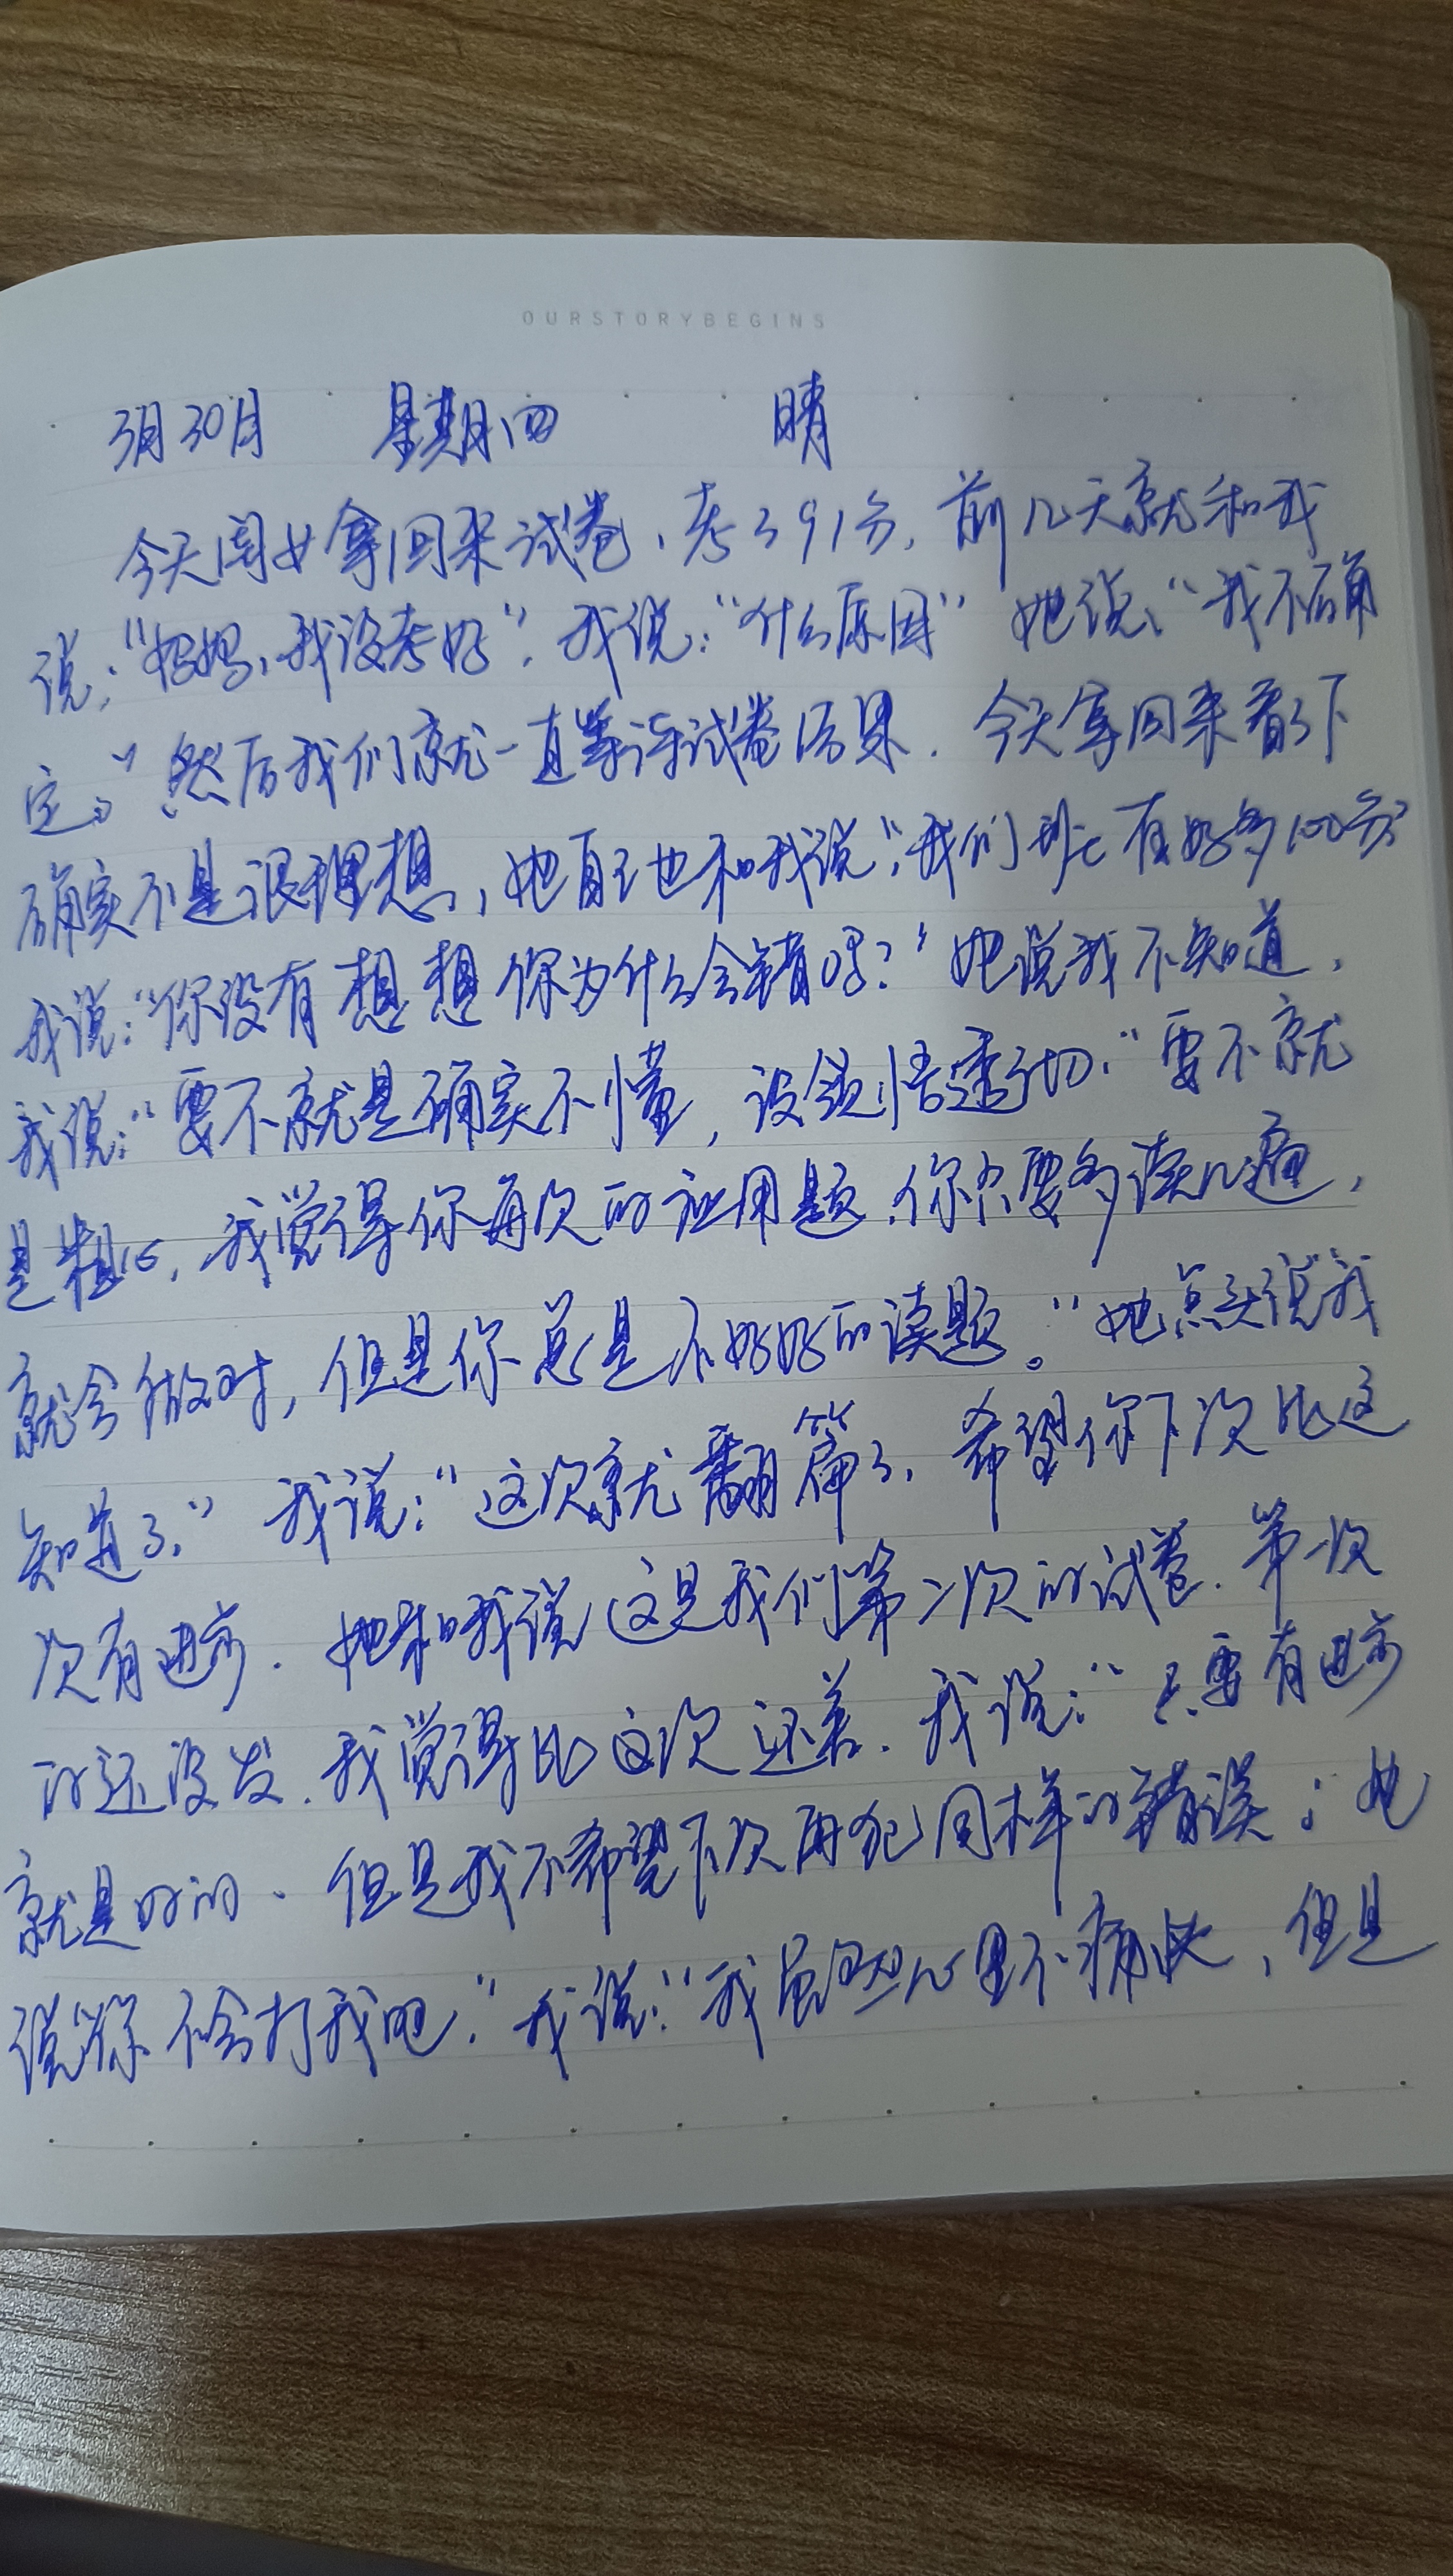 OURSTORYBEGINS
3月30月 星期四 晴
今天闺女拿回来试卷，考了91分，前几天就和我
说：“妈妈，我没考好”。我说：“什么原因” 她说、“我不确
定。” 然后我们就一直等试卷结果．今天拿回来看了下
确实不是很理想，她自己也和我说：“我们班有好多100分
我说：“你没有想想你为什么会错吗？” 她说我不知道，
我说：“要不就是确实不懂，没领悟透彻．“要不就
是粗心，我觉得你每次的应用题．你只要多读几遍，
就会做对，但是你总是不好好的读题。” 她点头说我
知道了。” 我说：“这次就翻篇了、希望你下次比这
次有进步．她和我说这是我们第二次的试卷．第一次
的还没发．我觉得比这次还差．我说：“只要有进步
就是好的．但是我不希望下次再犯同样的错误；她
说“你不会打我吧．” 我说：“我虽然心里不痛快，但是